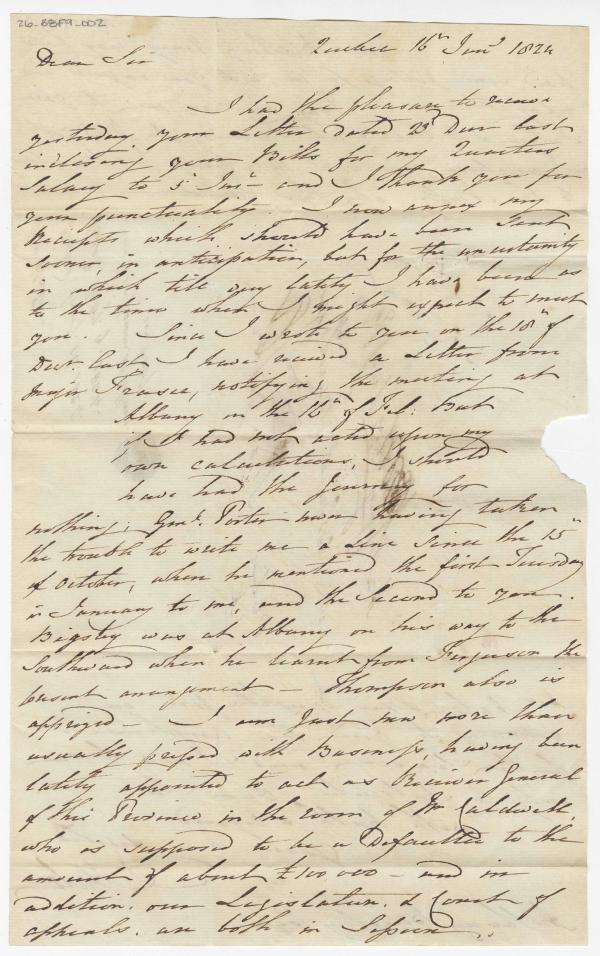 26-BBF9-002
Quebec 16th Jany 1824
Dear Sir
I had the pleasure to receive
yesterday your Letter dated 23d Decr last
inclosing your Bills for my Quarters
Salary to 5 Inst - and I thank you for
your punctuality. I now annex my
Receipts which should have been sent
sooner, in anticipation, but for the uncertainty
in which till very lately I have been as
to the time when I might expect to meet
you. Since I wrote to you on the 18th of
Decr last I have received a Letter from
Major Fraser, notifying the meeting at
Albany on the 16th of Feb: But
if I had not acted upon my
own calculations, I should
have had the Journey for
nothing; Genl. Porter never having taken
the trouble to write me a Line since the 15th
of October, when he mentioned the first Tuesday
in January to me, and the Second to you.
Bigsby was at Albany on his way to the
Southward when he learnt from Ferguson the
present arrangement - Thompson also is
apprized - I am Just now more than
usually pressed with Business, having been
lately appointed to act as Receiver General
of this Province in the room of Mr Caldwell,
who is supposed to be a Defaulter to the
amount of about £100 000 - and in
addition, our Legislature & Court of
appeals, are both in Session.